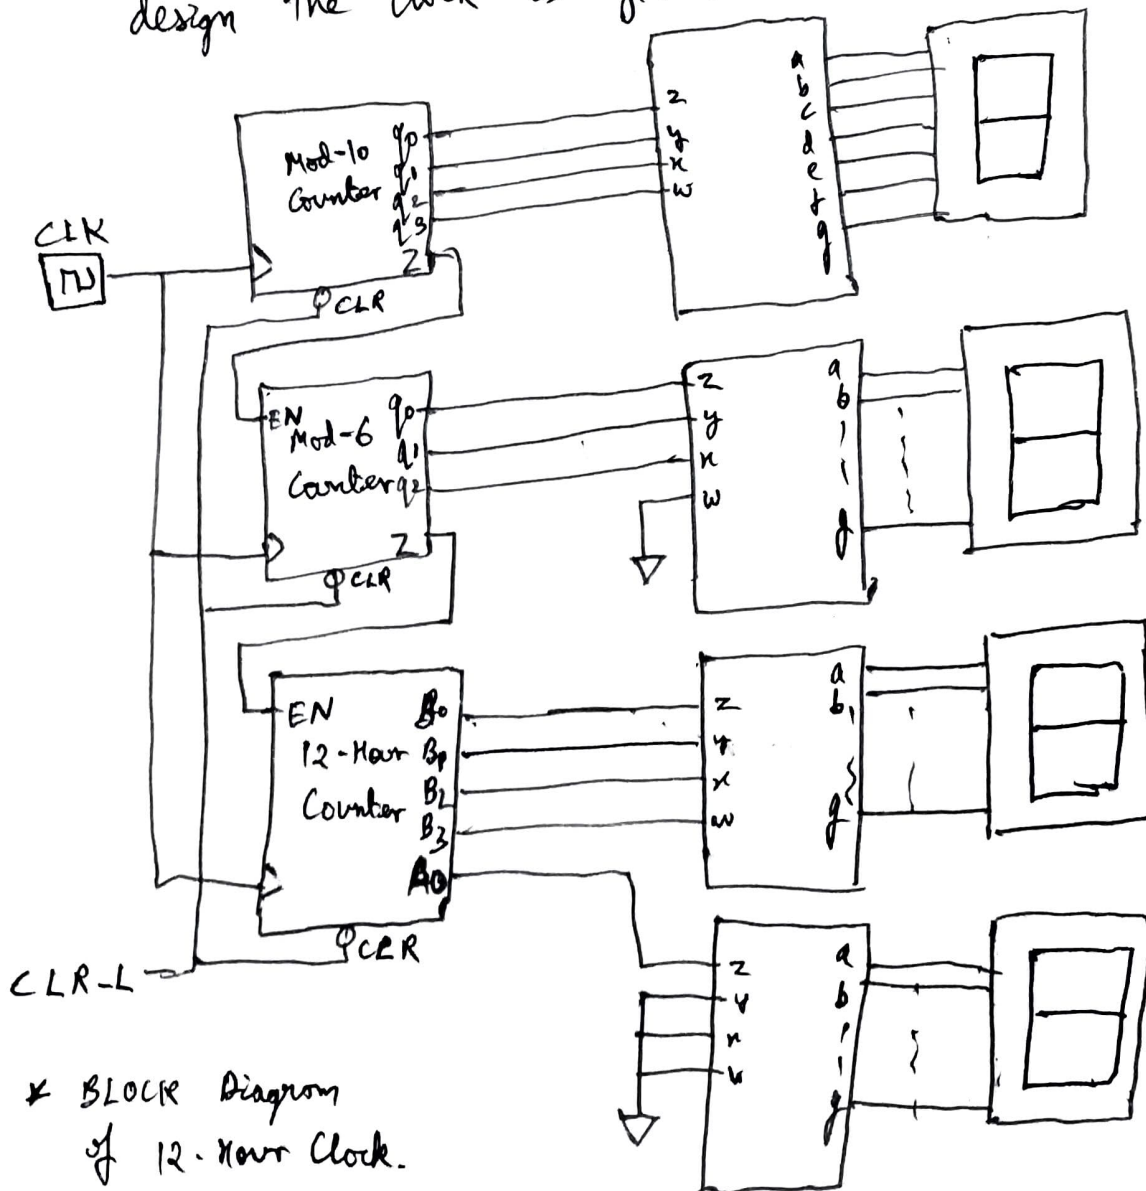 design the clock
a
b
c
d
e
f
g
z
y
x
w
Mod-10
Counter
q0
q1
q2
q3
Z
CLK
CLR
EN
Mod-6
Counter
q0
q1
q2
Z
CLR
z
y
x
w
a
b
g
EN
12-Hour
Counter
B0
B1
B2
B3
A0
CLR
z
y
x
w
a
b
g
CLR-L
z
y
x
w
a
b
g
* BLOCK Diagram
of 12-Hour Clock.